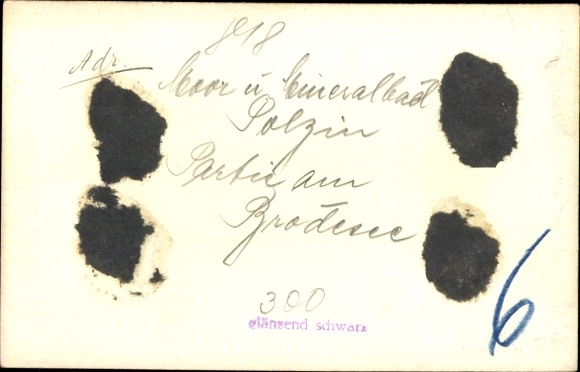 Adr.
Moor u Mineralbad
Polzin
Partie am
Brodesee
300
glänzend schwarz
6